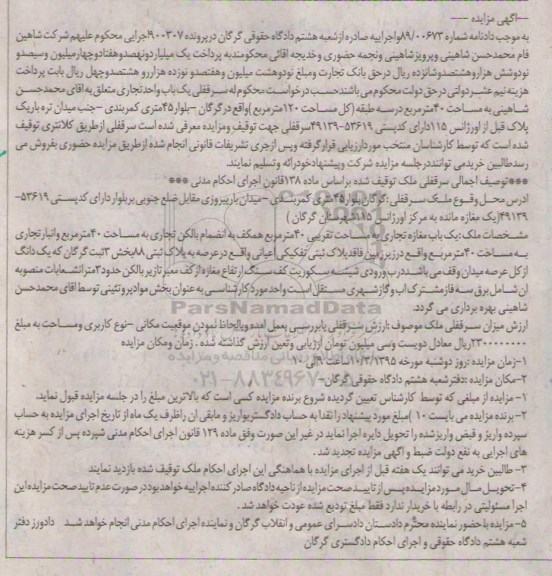 ---آگهی مزایده ---
به موجب دادنامه شماره ۸۹/۰۰۶۷۳واجراییه صادره ازشعبه هشتم دادگاه حقوقی گرگان درپرونده ۹۰۰۳۰۷اجرایی محکوم علیهم شرکت شاهین
فام محمدحسن شاهینی وپرویزشاهینی ونجمه حضوری وخدیجه اقائی محکومندبه پرداخت یک میلیاردونهصدوهفتادوچهارمیلیون وسیصدو
نودوشش هزاروهشتصدوشانزده ریال درحق بانک تجارت ومبلغ نودوهشت میلیون وهفتصدو نوزده هزاررو هشتصدوچهل ریال بابت پرداخت
هزینه نیم عشردولتی درحق دولت محکوم می باشندحسب درخواست محکوم له سرقفلی یک باب واحدتجاری متعلق به اقای محمدحسن
شاهینی به مساحت ۴۰مترمربع درسه طبقه (کل مساحت ۱۲۰مترمربع )واقع درگرگان -بلوار۴۵متری کمربندی -جنب میدان تره باریک
پلاک قبل از اورژانس ۱۱۵دارای کدپستی ۵۳۶۱۹-۴۹۱۳۹سرقفلی جهت توقیف ومزایده معرفی شده است سرقفلی ازطریق کلانتری توقیف
شده است که توسط کارشناسان منتخب موردارزیابی قرارگرفته وپس ازجری تشریفات قانونی انجام شده ازطریق مزایده حضوری بفروش می
رسدطالبین خریدمی تواننددرجلسه مزایده شرکت وپیشنهادخودرارائه وتسلیم نمایند.
***توصیف اجمالی سرقفلی ملک توقیف شده براساس ماده ۱۳۸قانون اجرای احکام مدنی ***
ادرس محل وقوع ملک سرقفلی :گرگان بلوار۴۵متری کمربندی -میدان بارپیروزی مقابل ضلع جنوبی بربلوار دارای کدپستی ۵۳۶۱۹-
۴۹۱۳۹(یک مغازه مانده به مرکز اورژانس ۱۱۵شهرستان گرگان )
مشخصات ملک :یک باب مغازه تجاری به مساحت تقریبی ۴۰مترمربع همکف به انضمام بالکن تجاری به مساحت ۴۰مترمربع وانبارتجاری
به مساحت ۴۰مترمربع واقع درزیرزمین فاقدپلاک ثبتی تفکیکی اعیانی واقع درعرصه به پلاک ثبتی ۸۸بخش ۳ثبت گرگان که یک دانگ
ازکل عرصه میدان وقف می باشددرب ورودی شیشه سکوریت کف سنگ ارتفاع مغازه ازکف معبرتازیربالکن حدود۳مترانشعابات منصوبه
ان شامل برق سه فازمشترک اب وگازشهری مستقل است واحدموردکارشناسی به عنوان پخش موادپروتئینی توسط اقای محمدحسن
شاهینی بهره برداری می گردد.
ارزش میزان سرقفلی ملک موصوف :ارزش سرقفلی بابررسی بعمل امده وبالحاظ نمودن موقعیت مکانی -نوع کاربری ومساحت به مبلغ
۲۳۰۰۰۰۰۰۰۰ریال معادل دویست وسی میلیون تومان ارزیابی وتعین ارزش گذاشته شده . زمان ومکان مزایده
۱-زمان مزایده :روز دوشنبه مورخه ۱۰/۳/۱۳۹۵ساعت ۹الی ۱۰
۲-مکان مزایده :دفترشعبه هشتم دادگاه حقوقی گرگان
ParsNamadData
۰۲۱-۸۸۳۴۹۶۷
۱- مزایده از مبلغی که توسط کارشناس تعیین گردیده شروع برنده مزایده کسی است که بالاترین مبلغ را در جلسه مزایده قبول نماید.
۲- برنده مزایده می بایست ۱۰ % مبلغ مورد پیشنهاد را نقدا به حساب دادگستریواریز و مابقی ان راظرف یک ماه از تاریخ اجرای مزایده به حساب
سپرده واریز و قبض واریزشده را تحویل دایره اجرا نماید در غیر این صورت وفق ماده ۱۲۹ قانون اجرای احکام مدنی شپرده پس از کسر هزینه
های اجرایی به نفع دولت ضبط و آگهی مزایده تجدید شد .
۳- طالبین خرید می توانند یک هفته قبل از اجرای مزایده با هماهنگی این اجرای احکام ملک توقیف شده بازدید نمایند
۴- تحویل مال مورد مزایده پس از تایید صحت مزایده از ناحیه دادگاه صادر کننده اجراییه خواهد بود در صورت عدم تایید صحت مزایده این
اجرا مسئولیتی در رابطه با خریدار ندارد فقط مبلغ تودیع شده عودت خواهد شد .
۵- مزایده با حضور نماینده محترم دادستان دادسرای عمومی و انقلاب گرگان و نماینده اجرای احکام مدنی انجام خواهد شد دادورز دفتر
شعبه هشتم دادگاه حقوقی و اجرای احکام دادگستری گرگان